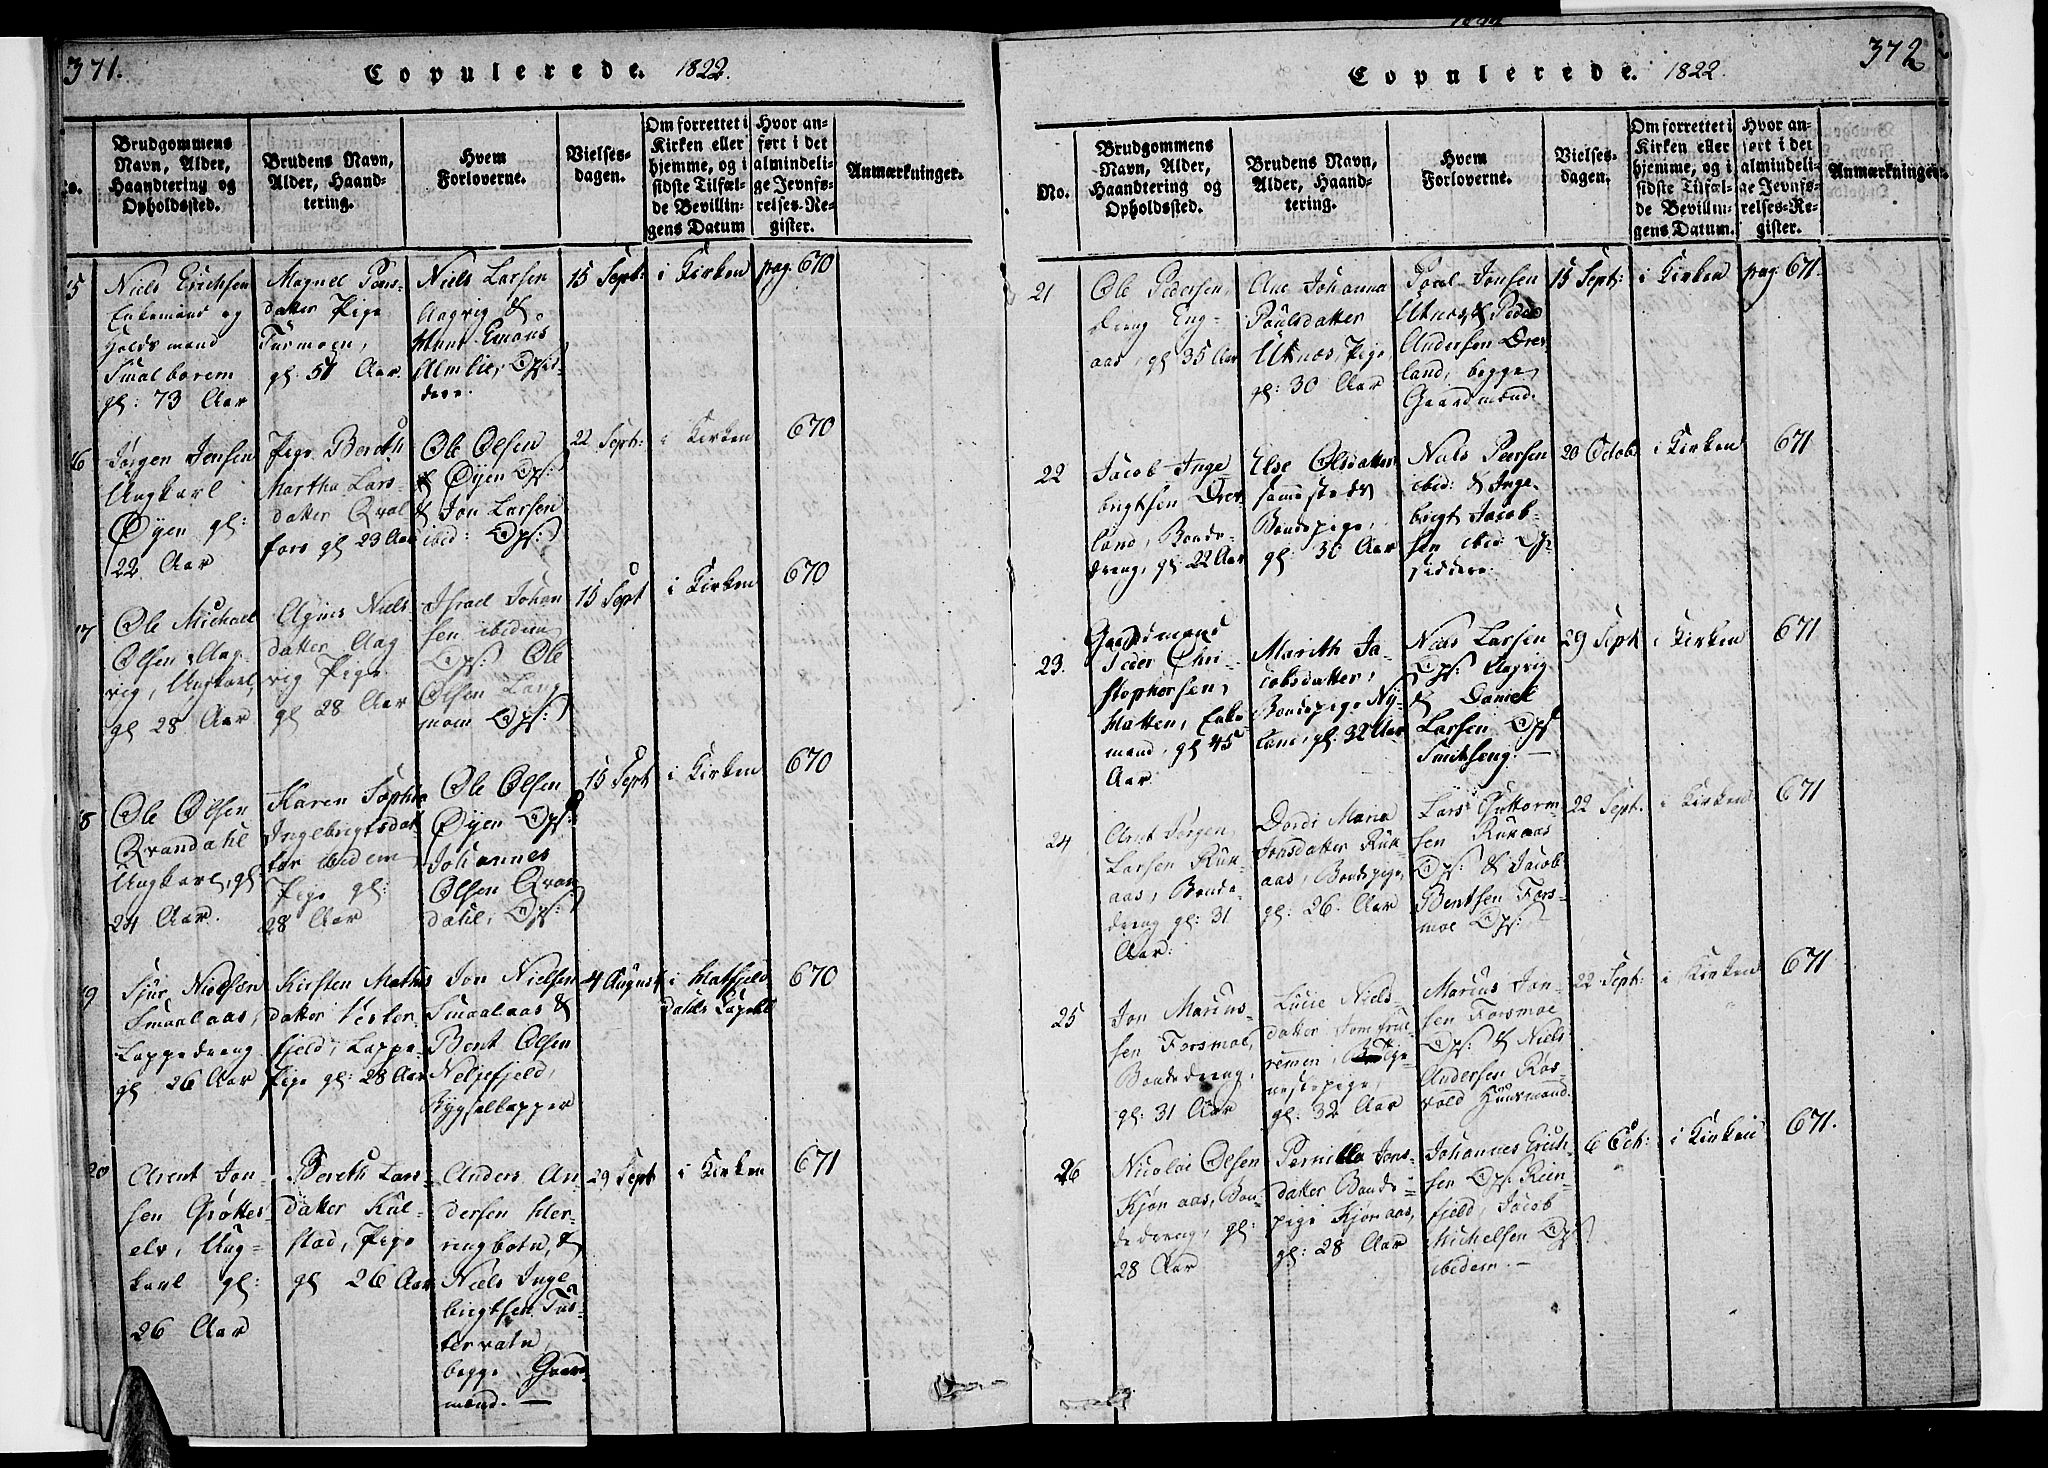 371.
Copulerede. 1822.
No.
Brudgommens
Navn, Alder,
Haandtering og
Opholdssted.
Brudens Navn,
Alder, Haand-
tering.
Hvem
Forloverne.
Vielses-
dagen.
Om forrettet i
Kirken eller
hjemme, og i
sidste Tilfæl-
de Bevillin-
gens Datum
Hvor an-
ført i det
almindeli-
ge Jevnfø-
relses-Re-
gister.
Anmærkninger.
15
Niels Erichsen
Enkemand og
Smalborem
gl: 73 Aar
Magnel Pens-
datter Pige
Turmoen,
gl: 51 Aar.
Niels Larsen
Aagvig &
Hans Emaus
Almlie, Opsid-
dere.
15 Sept:
i Kirken
pag. 670
16
Jørgen Jensen
Ungkarl
Øyen gl:
22 Aar
Pige Bereth
Martha Lars-
datter Qval
fors gl 23 Aar
Ole Olsen
Øyen Ops:
& Jon Larsen
ibid: Ops:
22 Sept:
i Kirken
670
17
Ole Michael
Olsen Aag-
vig, Ungkarl,
gl 28 Aar
Agnes Niels
datter Aag
vig Pige
gl 28 Aar
Israel Johan
sen ibidem
Ops: Ole
Olsen Lang
moen Ops:
15 Sept
i Kirken
670
18
Ole Olsen
Qvandahl
Ungkarl, gl:
24 Aar.
Karen Sophie
Ingebrigtsdat
ter ibidem
Pige gl:
28 Aar
Ole Olsen
Øyen Ops:
Johannes
Olsen Qvan
dahl, Ops:
15 Sept
i Kirken
670
19
Sjur Nielsen
Smaalaas,
Lappedreng
gl 26 Aar
Kirsten Mathis
datter Vester
fjeld, Lappe-
Pige gl: 28 Aar
Jon Nielsen
Smaalaas &
Bent Olsen
Neljefjeld,
Bygsellapper
4 August
i Hatfjeld
dahls Capell
670
20
Arent Jon-
sen Grøttes-
elv, Ung-
karl gl:
26 Aar
Bereth Lars-
datter Kul-
stad, Pige
gl 26 Aar
Anders An-
dersen Her-
ringbotn, &
Niels Inge
birgtsen Tus-
tervatn,
begge Gaard
mænd. —
29 Sept
i Kirken
671
372
Copulerede. 1822.
No.
Brudgommens
Navn, Alder,
Haandtering og
Opholdssted.
Brudens Navn,
Alder, Haand-
tering.
Hvem
Forloverne.
Vielses-
dagen.
Om forrettet i
Kirken eller
hjemme, og i
sidste Tilfæl-
de Bevillin-
gens Datum.
Hvor an-
ført i det
almindeli-
ge Jevnfø-
relses-Re-
gister.
Anmærkninger.
21
Ole Pedersen,
dreng Eng-
aas, gl 35 Aar
Ane Johanna
Paulsdatter
Utnæs, Pige,
gl: 30 Aar
Poul Jonsen
Utnæs, & Peder
Andersen Over
land, begge
Gaardmænd.
15 Sept:
i Kirken
pag: 671.
22
Jacob Inge
brigtsen Over
land, Bonde-
dreng, gl: 22 Aar
Else Olsdatter
sammesteds
Bondepige,
gl: 30 Aar
Niels Peersen
ibid: & Inge-
brigt Jacob-
sen ibid Op-
siddere.
20 Octob
i Kirken
671
23.
Gaardmand
Peder Chri-
stophersen,
Hatten, Enke
mand, gl 45
Aar
Marith Ja-
cobsdatter,
Bondepige Ny
land, gl: 32 Aar
Niels Larsen
Ops: Aagvig
& Daniel
Larsen, Ops
Smithseng. —
29 Sept
i Kirken
671
24
Arnt Jørgen
Larsen Ruk-
aas, Bonde
dreng gl: 31
Aar:
Dordi Maria
Jonsdatter Ruk-
aas, Bondepige,
gl: 26. Aar
Lars Guttorm
sen Rukaas
Ops: & Jacob
Bentsen Fors-
moe Ops:
22 Sept.
i Kirken
671
25
Jon Marius-
sen Forsmoe,
Bondedreng,
gl: 31 Aar
Lucie Niels-
datter Jomfrue
remen,
nestepige,
gl: 32 Aar
Marius Jon-
sen Forsmoe
Ops: & Niels
Andersen Røs
vold Huusmand.
22 Sept:
i Kirken
671.
26
Nicolai Olsen
Kjønaas, Bon-
dedreng, gl:
28 Aar
Pernilla Jons-
datter Bonde
pige Kjønaas,
gl: 28 Aar
Johannes Erich-
sen Ops. Rein-
fjeld, Jacob
Michelsen Ops
ibidem. —
6 Oct:
i Kirken
671.